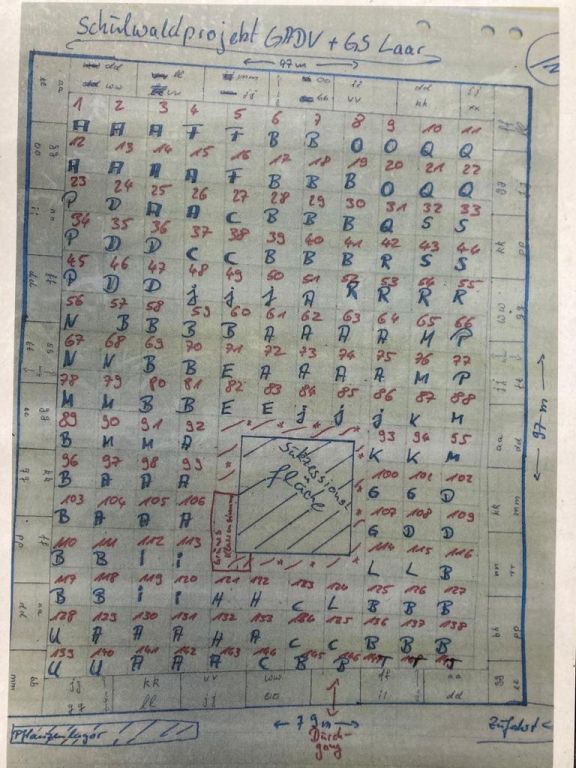 Schulwaldprojekt GADV + GS Laar
← 97 m →
dd ll mm oo dd jj
dd ww vv jj hh vv kk xx
1 2 3 4 5 6 7 8 9 10 11
A A A F F B B O O Q Q
12 13 14 15 16 17 18 19 20 21 22
A A A A F B B B O Q Q
23 24 25 26 27 28 29 30 31 32 33
P D A A C B B B Q S S
34 35 36 37 38 39 40 41 42 43 44
P D D C C B B B R S S
45 46 47 48 49 50 51 52 53 54 55
P D D j j j A R R R R
56 57 58 59 60 61 62 63 64 65 66
N B B B B A A A A M P
67 68 69 70 71 72 73 74 75 76 77
N N B B E A A A A M P
78 79 80 81 82 83 84 85 86 87 88
M M B B E E j j j K M
89 90 91 92 93 94 95
B M M A K K M
Sukzessions
fläche
96 97 98 99 100 101 102
B A A A G G D
103 104 105 106 107 108 109
B A A A G D D
Grünes
Klassenzimmer
110 111 112 113 114 115 116
B B i i L L B
117 118 119 120 121 122 123 124 125 126 127
B B i i H H C L B B B
128 129 130 131 132 133 134 135 136 137 138
U A A A H A C C B B B
139 140 141 142 143 144 145 146 147 148
U U A A A C B B T T J
kk vv ww ff aa
ll jj oo ii dd
Pflanzenlager
← 79 m →
Durch-
gang
Zufahrt <
← 97 m →